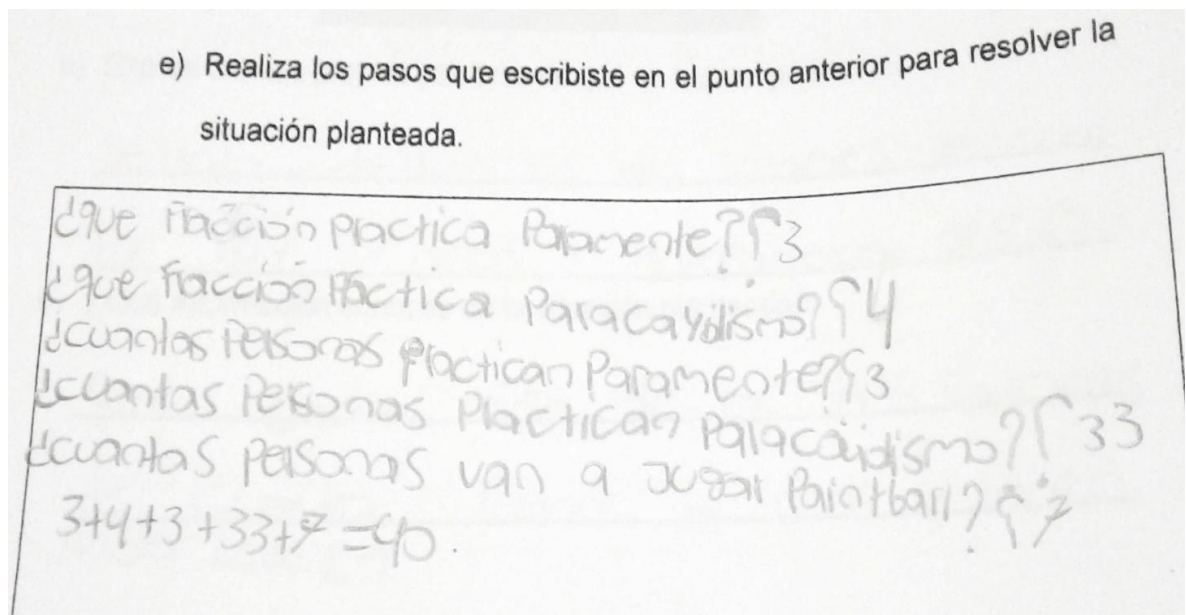 e) Realiza los pasos que escribiste en el punto anterior para resolver la
situación planteada.
¿que fracción practica Paramente? 3
¿que fracción Practica Paracaydismo? 4
¿cuantas Personas practican Paramente? 3
¿cuantas Personas Practican Paracaidismo? 33
¿cuantas personas van a Jugar Paintball? 7
3+4+3+33+7=40.